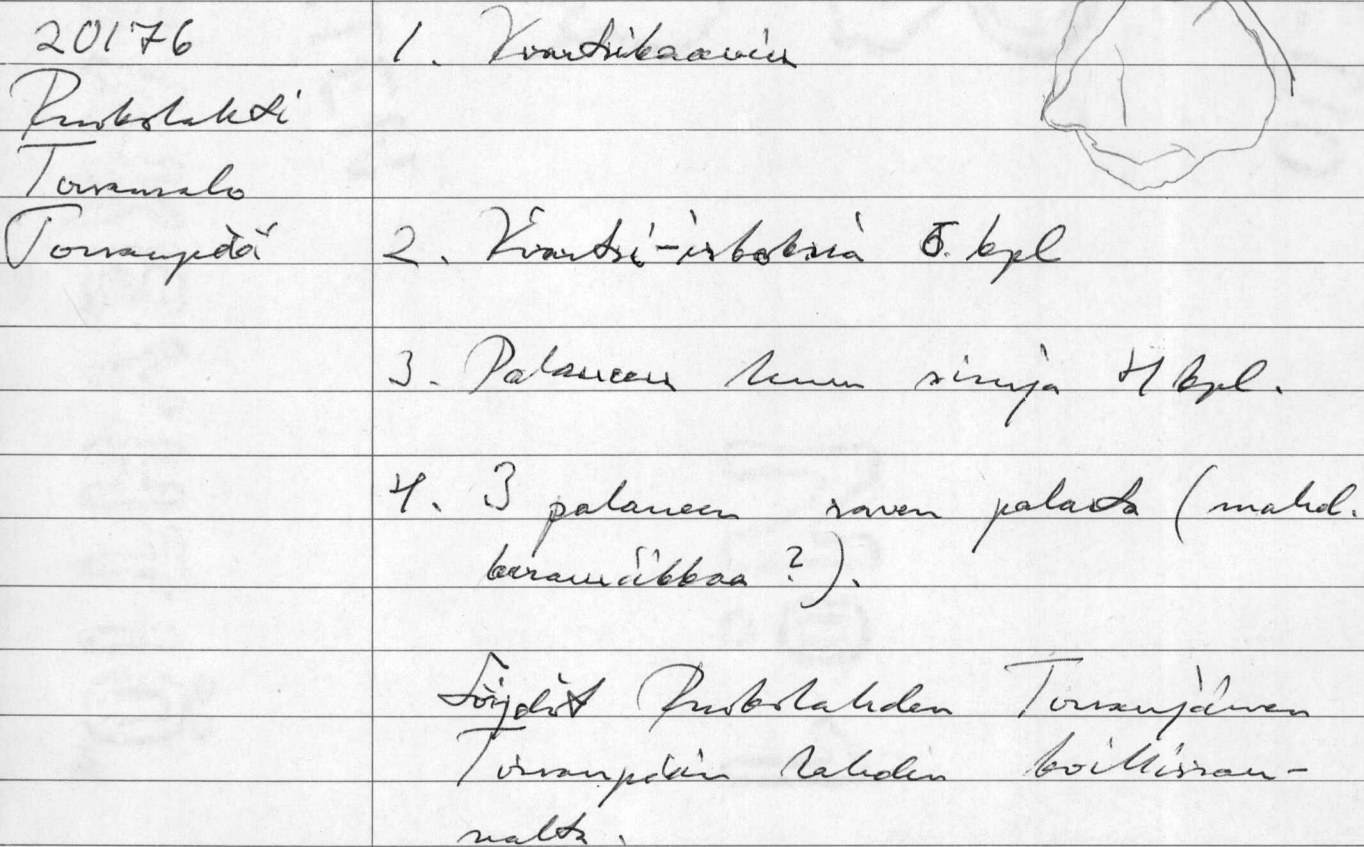 20176
Ruokolahti
Torsansalo
Torsanpää
1. Kvartsikaavin
2. Kvartsi-iskoksia 5. kpl
3. Palaneen luun siruja 4 kpl.
4. 3 palaneen saven palasta (mahd.
keramiikkaa ?).
Löydöt Ruokolahden Torsanjärven
Torsanpään lahden koillisran-
nalta.